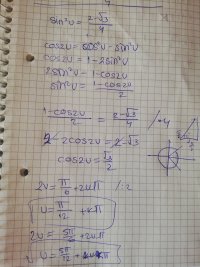 sin²υ = (2-√3)/4
cos2υ = cos²υ - sin²υ
cos2υ = 1 - 2sin²υ
2sin²υ = 1 - cos2υ
sin²υ = (1-cos2υ)/2
(1-cos2υ)/2 = (2-√3)/4 /·4
2 - 2cos2υ = 2 - √3
cos2υ = √3/2
2υ = π/6 + 2kπ /:2
υ = π/12 + kπ
2υ = 5π/6 + 2kπ
υ = 5π/12 + kπ